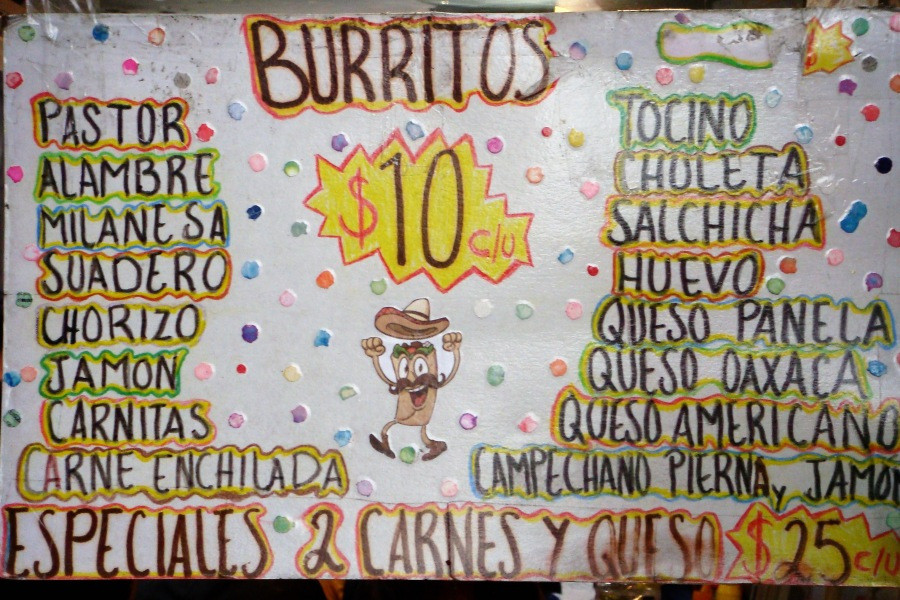 BURRITOS
$10 c/u
PASTOR
ALAMBRE
MILANESA
SUADERO
CHORIZO
JAMON
CARNITAS
CARNE ENCHILADA
TOCINO
CHULETA
SALCHICHA
HUEVO
QUESO PANELA
QUESO OAXACA
QUESO AMERICANO
CAMPECHANO PIERNA y JAMON
ESPECIALES 2 CARNES Y QUESO $25 c/u